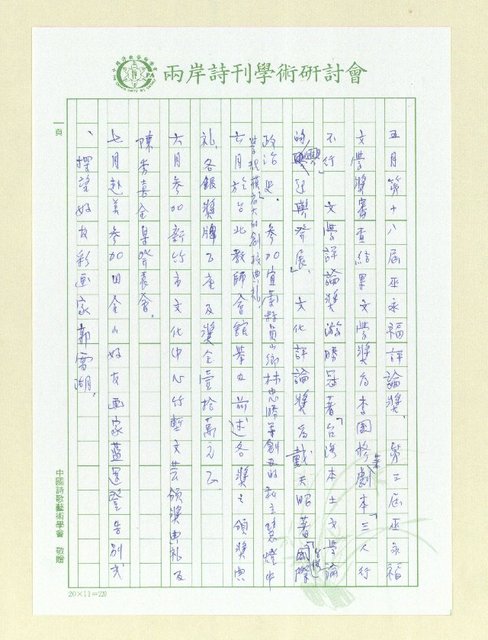 兩岸詩刊學術研討會
五月第十八屆巫永福評論獎、第二屆巫永福
文學獎審查結果文學獎為李國修劇本「三人行
不行」文學評論獎游勝冠著「台灣本土文學論
的興起與發展」文化評論獎為戴天昭著「國際
政治史」參加宜蘭縣員山鄉林忠勝等創立的私立慧燈中
學
六月於台北教師會館舉立前述各獎之頒獎典
礼各銀獎牌乙座及獎金壹拾萬元正
六月參加新竹市文化中心竹塹文芸頒獎典礼及
陳秀喜全集發表會。
七月赴美參加舊金山好友画家藍運登告別式
、探望好友彩画家郭雪湖。
一頁
中國詩歌藝術學會 敬贈
20×11=220